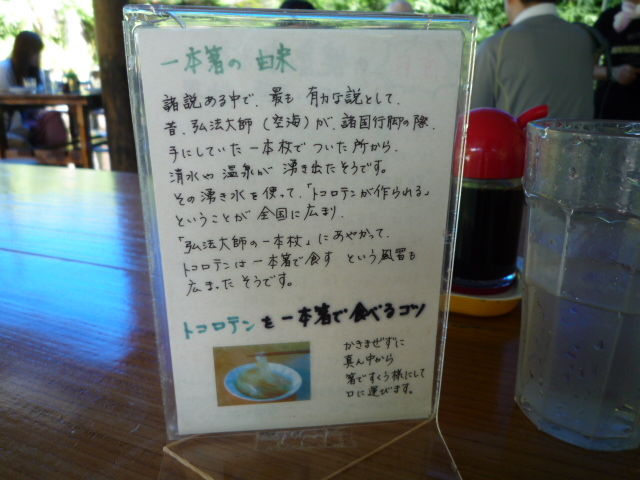 一本箸の 由来
諸説ある中で、最も 有力な説として、
昔、弘法大師（空海）が、諸国行脚の際、
手にしていた一本杖でついた所から、
清水や温泉が 湧き出たそうです。
その湧き水を使って、「トコロテンが作られる」
ということが 全国に広まり、
「弘法大師の一本杖」にあやかって、
トコロテンは一本箸で食す という風習も
広まったそうです。
トコロテンを一本箸で食べるコツ
かきまぜずに
真ん中から
箸ですくう様にして
口に運びます。